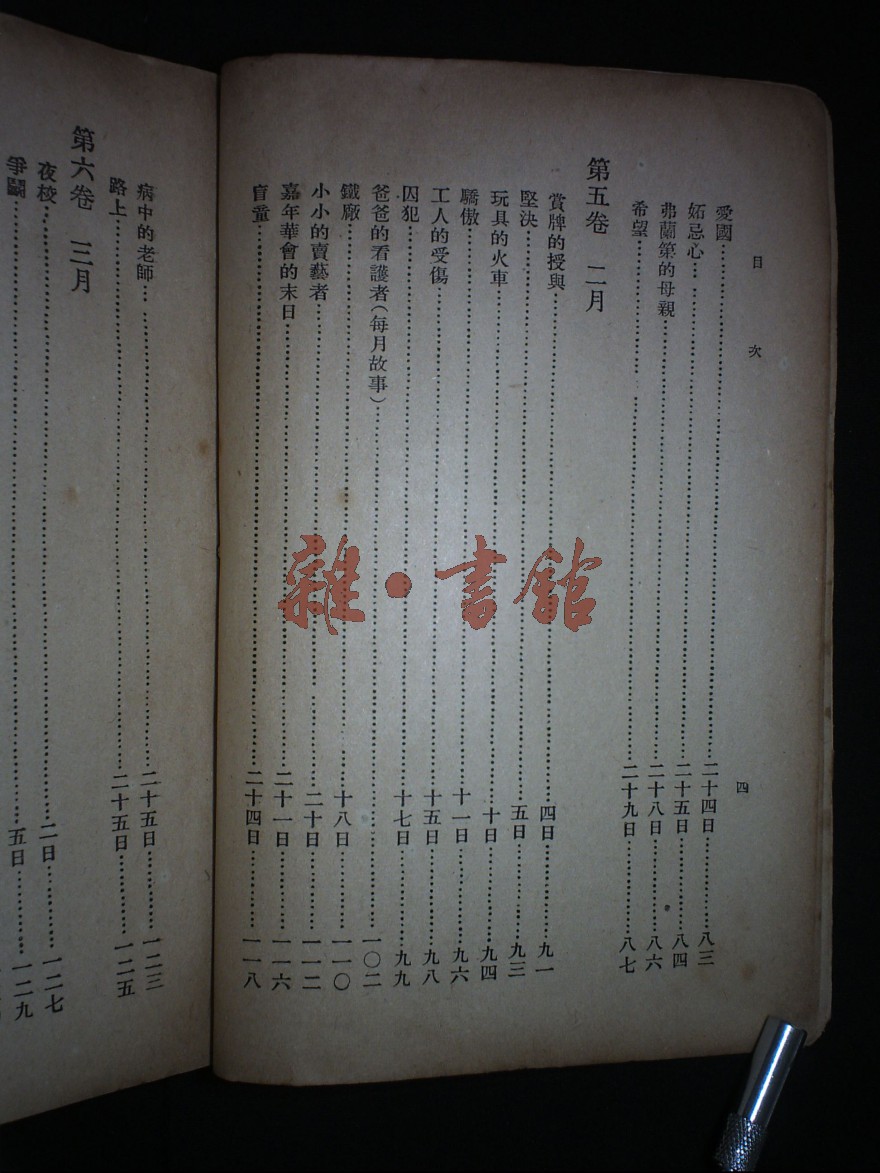 目次
四
愛國 二十四日 八三
妬忌心 二十五日 八四
弗蘭第的母親 二十八日 八六
希望 二十九日 八七
第五卷 二月
賞牌的授與 四日 九一
堅決 五日 九三
玩具的火車 十日 九四
驕傲 十一日 九六
工人的受傷 十五日 九八
囚犯 十七日 九九
爸爸的看護者(每月故事) 一〇二
鐵廠 十八日 一一〇
小小的賣藝者 二十日 一一二
嘉年華會的末日 二十一日 一一六
盲童 二十四日 一一八
病中的老師 二十五日 一二三
路上 二十五日 一二五
第六卷 三月
夜校 二日 一二七
爭鬭 五日 一二九
雜·書館